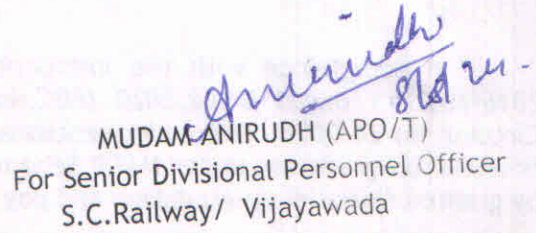 Anirudh
MUDAM ANIRUDH (APO/T)
For Senior Divisional Personnel Officer
S.C.Railway/ Vijayawada